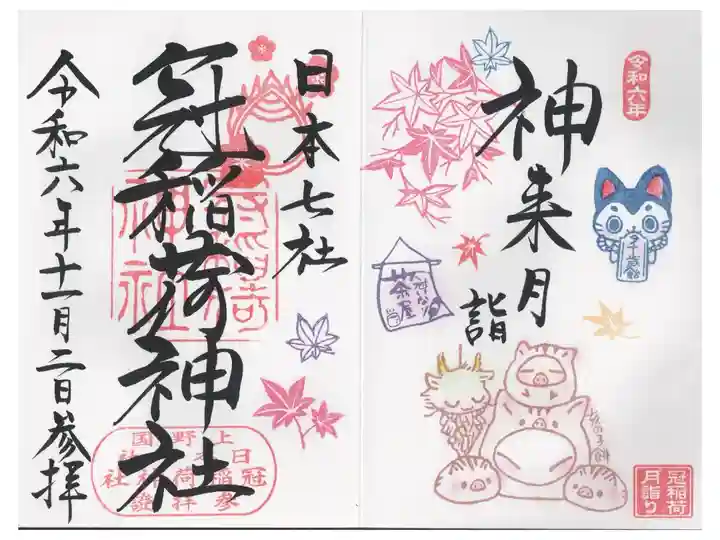 令和六年
神来月
詣
千歳飴
茶屋
亥の子餅
冠稲荷
月詣り
日本七社
冠稲荷神社
令和六年十一月二日参拝
上野国
日本七社
冠稲荷神社
参拝證